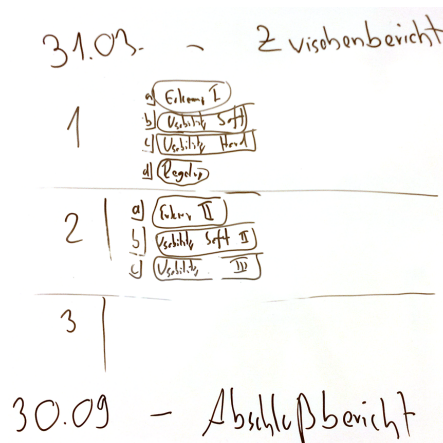 31.03. - Zwischenbericht
1
a) I
b) Usability Soft
c) Usability Hard
d)
2
a) II
b) Usability Soft II
c) Usability III
3
30.09 - Abschlußbericht